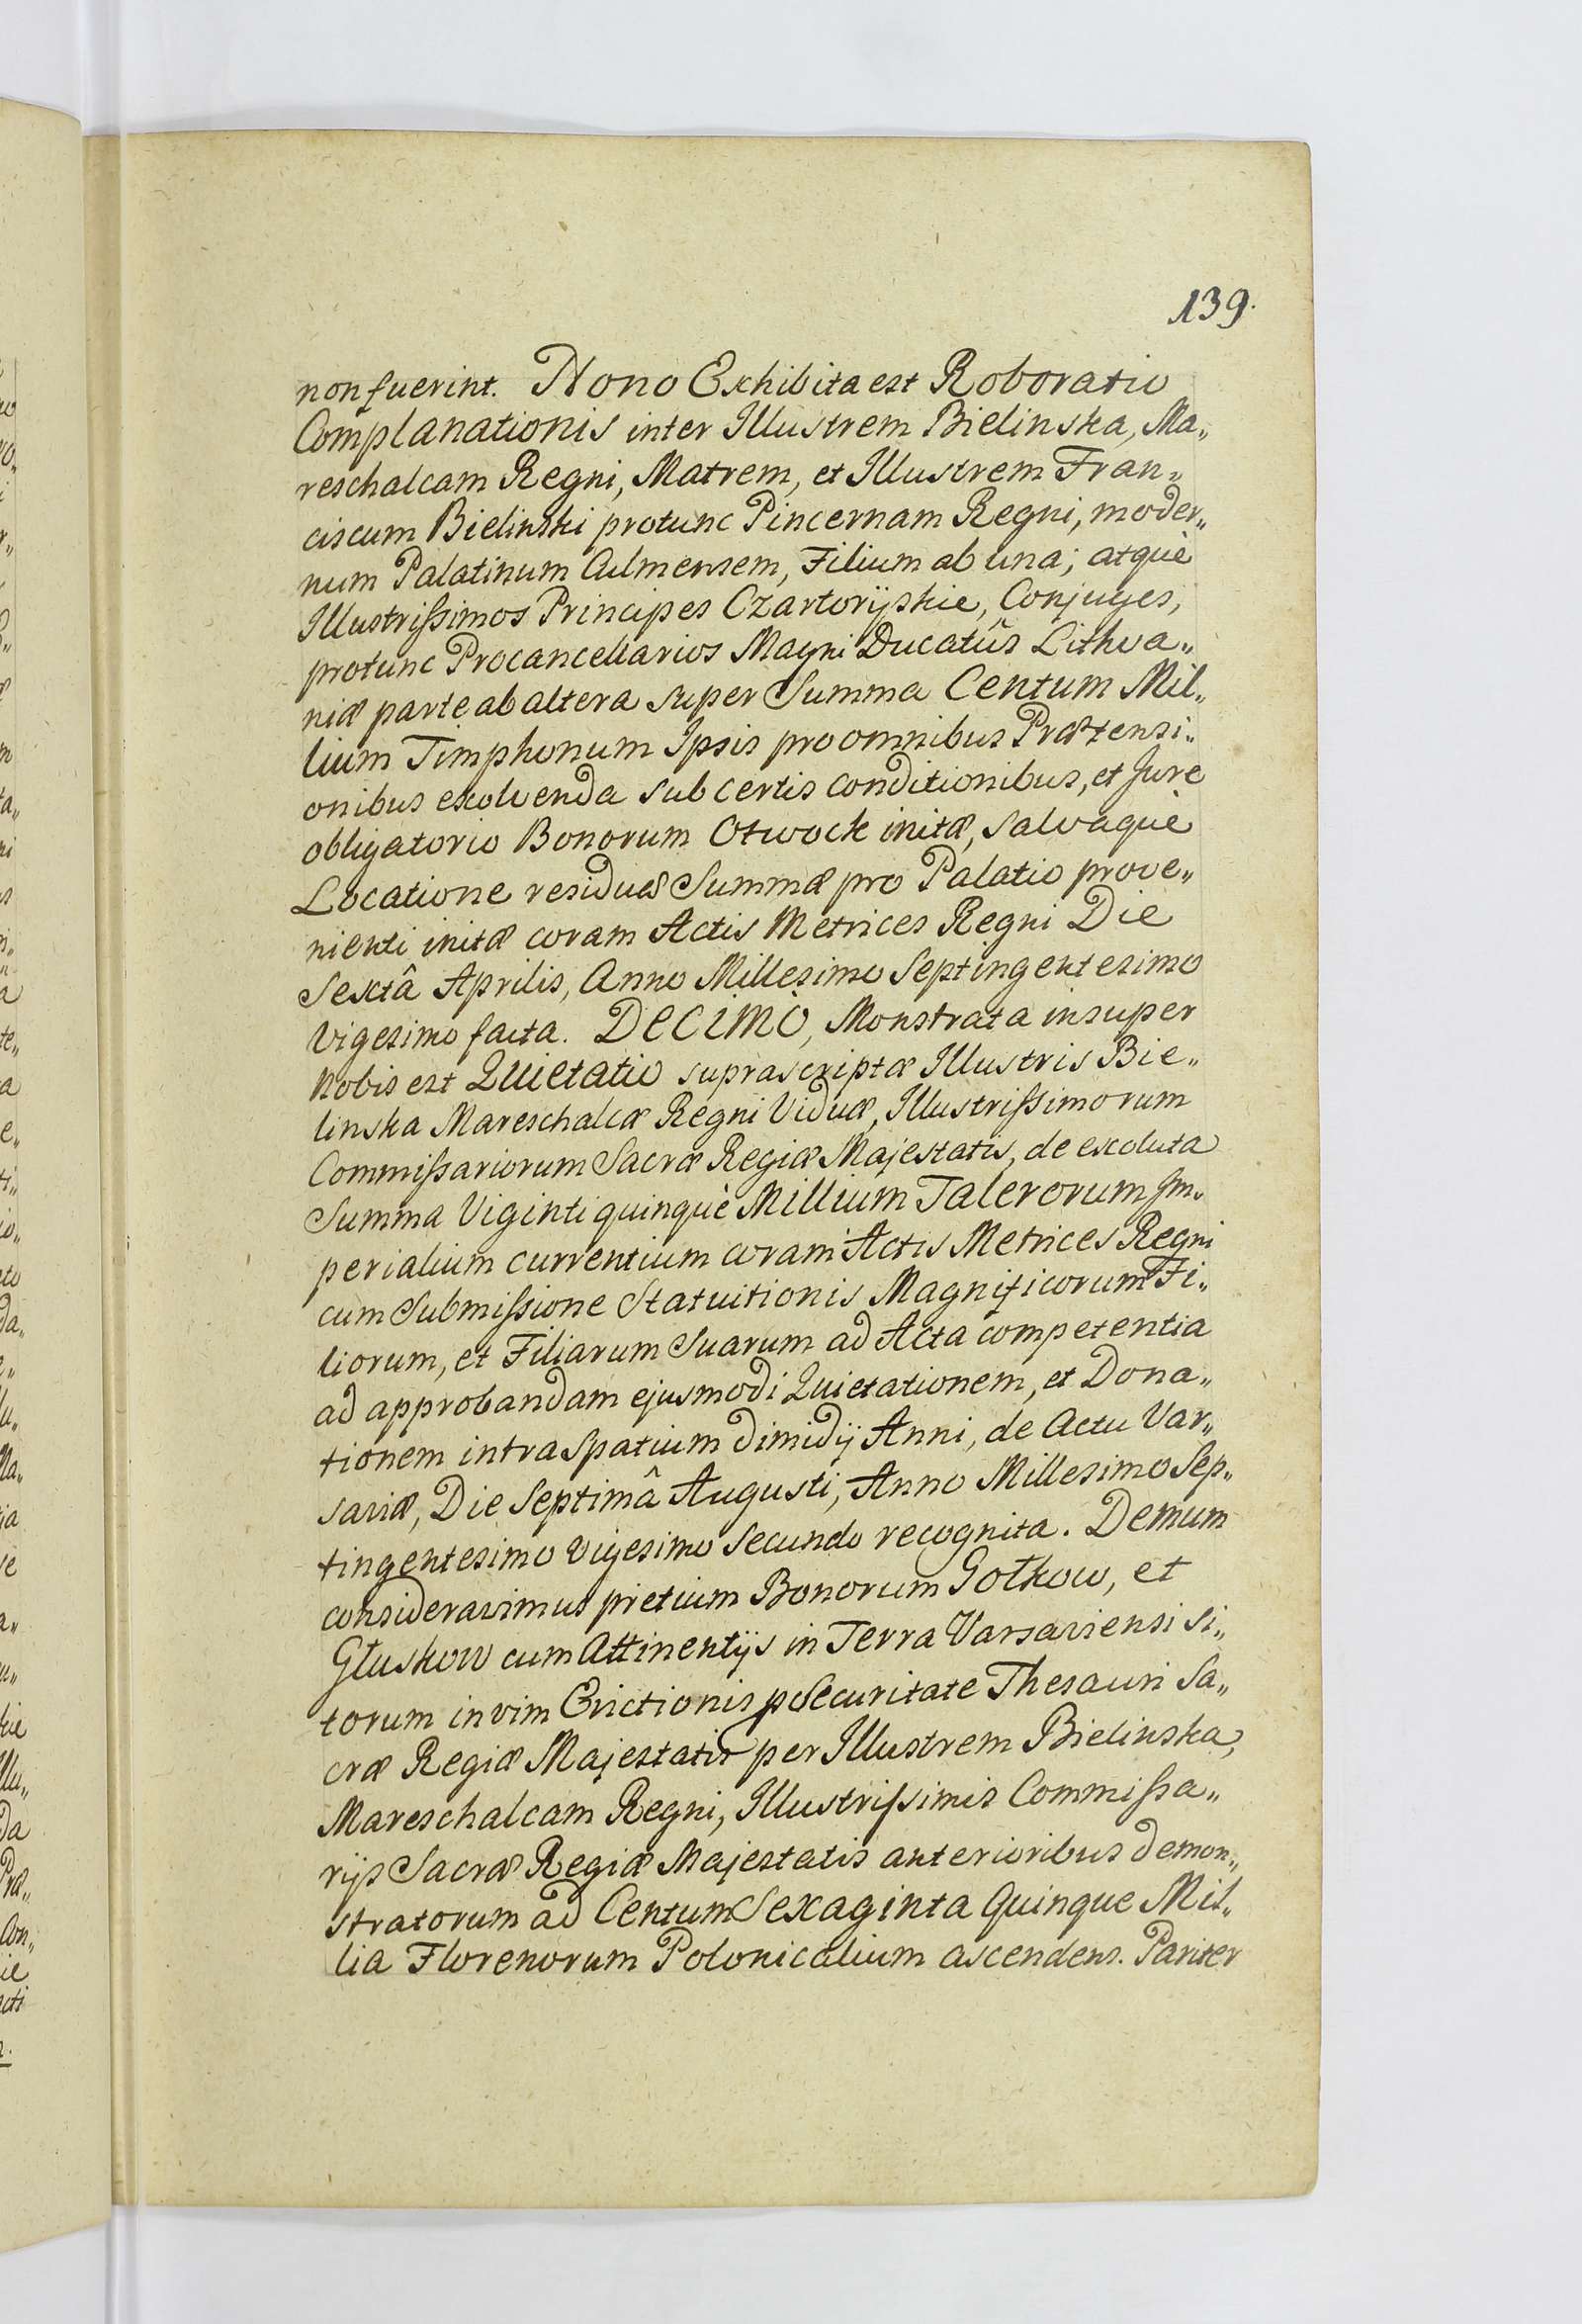 139.
non fuerint. Nono Exhibita est Roboratio
Complanationis inter Illustrem Bielinska, Ma„
reschalcam Regni, Matrem, et Illustrem Fran„
ciscum Bielinski protunc Pincernam Regni, moder„
num Palatinum Culmensem, Filium ab una; atquè
Illustrissimos Principes Czartoryskie, Conjuges,
protunc Procancellarios Magni Ducatûs Lithva„
niæ parte ab altera super Summa Centum Mil„
lium Timphonum Ipsis pro omnibus Prætensi„
onibus exolvenda sub certis conditionibus, et Jure
obligatorio Bonorum Otwock initæ, salvaquè
Locatione residuæ Summæ pro Palatio prove„
nienti initæ coram Actis Metrices Regni Die
Sextâ Aprilis, Anno Millesimo Septingentesimo
Vigesimo facta. DECIMÒ, Monstrata insuper
Nobis est Quietatio suprascriptæ Illustris Bie„
linska Mareschalcæ Regni Viduæ, Illustrissimorum
Commissariorum Sacræ Regiæ Majestatis, de exoluta
Summa Viginti quinquè Millium Talerorum Im„
perialium currentium coram Actis Metrices Regni
cum Submissione Statuitionis Magnificorum Fi„
liorum, et Filiarum Suarum ad Acta competentia
ad approbandam ejusmodi Quietationem, et Dona„
tionem intra spatium dimidij Anni, de Actu Var„
saviæ, Die Septimâ Augusti, Anno Millesimo Sep„
tingentesimo vigesimo Secundo recognita. Demum
consideravimus pretium Bonorum Gołkow, et
Głuskow cum Attinentijs in Terra Varsaviensi si„
torum in vim Evictionis p Securitate Thesauri Sa„
cræ Regiæ Majestatis per Illustrem Bielinska,
Mareschalcam Regni, Illustrissimis Commissa„
rijs Sacræ Regiæ Majestatis anterioribus demon„
stratorum ad Centum Sexaginta Quinque Mil„
lia Florenorum Polonicalium ascendens. Pariter